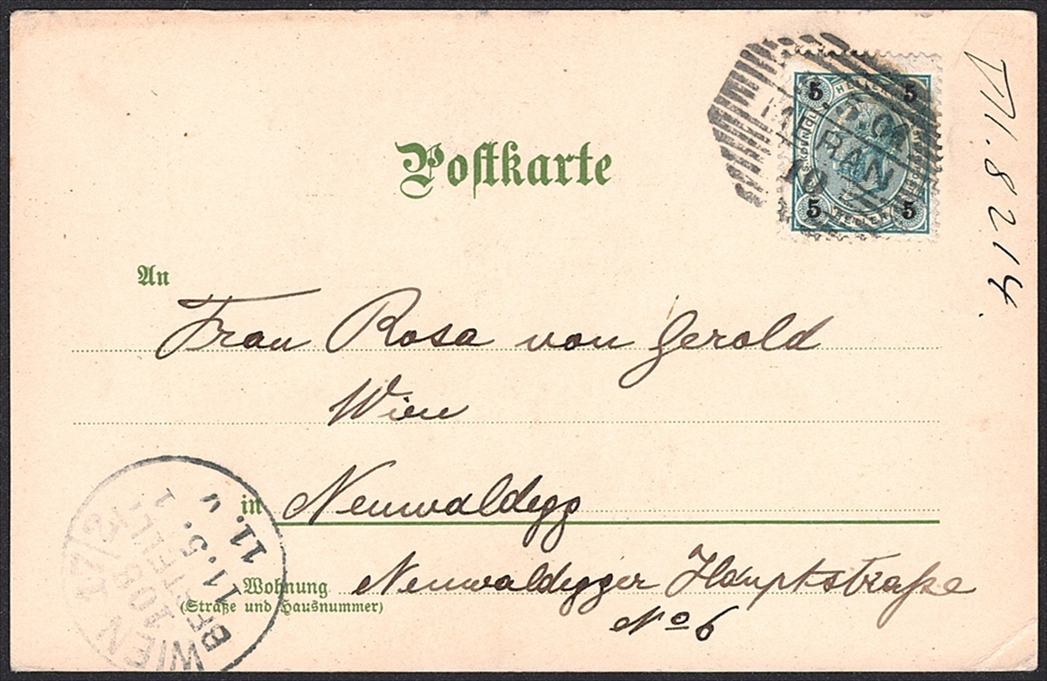 Postkarte
5 HELLER 5
5 HELLER 5
MERAN
10
An
Frau Rosa von Gerold
Wien
in Neuwaldegg
Wohnung Neuwaldegger Hauptstraße
(Straße und Hausnummer)
No 6
WIEN 17/2
BESTELLT
11. 5.
11. V
8214.